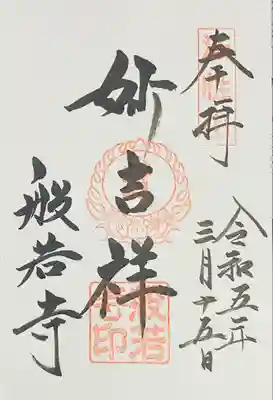 奉拝
令和五年
三月十五日
妙吉祥
般若寺